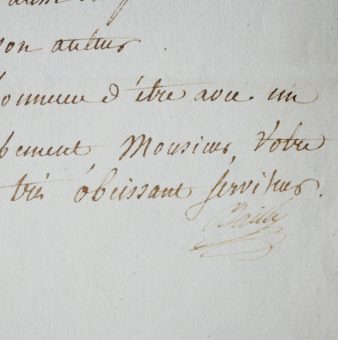 son auteur.
honneur d'être avec un
Monsieur, Votre
très obeissant serviteur.
Bailly